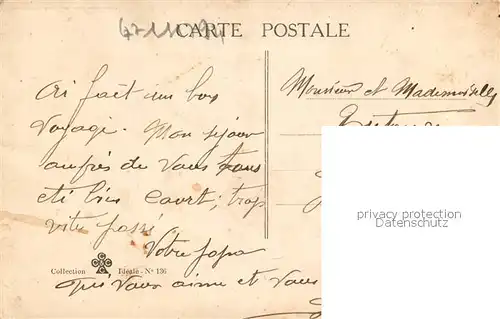 CARTE POSTALE
Ai fait un bon
voyage. Mon séjour
auprès de vous
été bien court; trop
vite passé
Votre papa
qui vous aime et vous
Monsieur et Mademoiselle
privacy protection
Datenschutz
Collection Idéale - N° 136